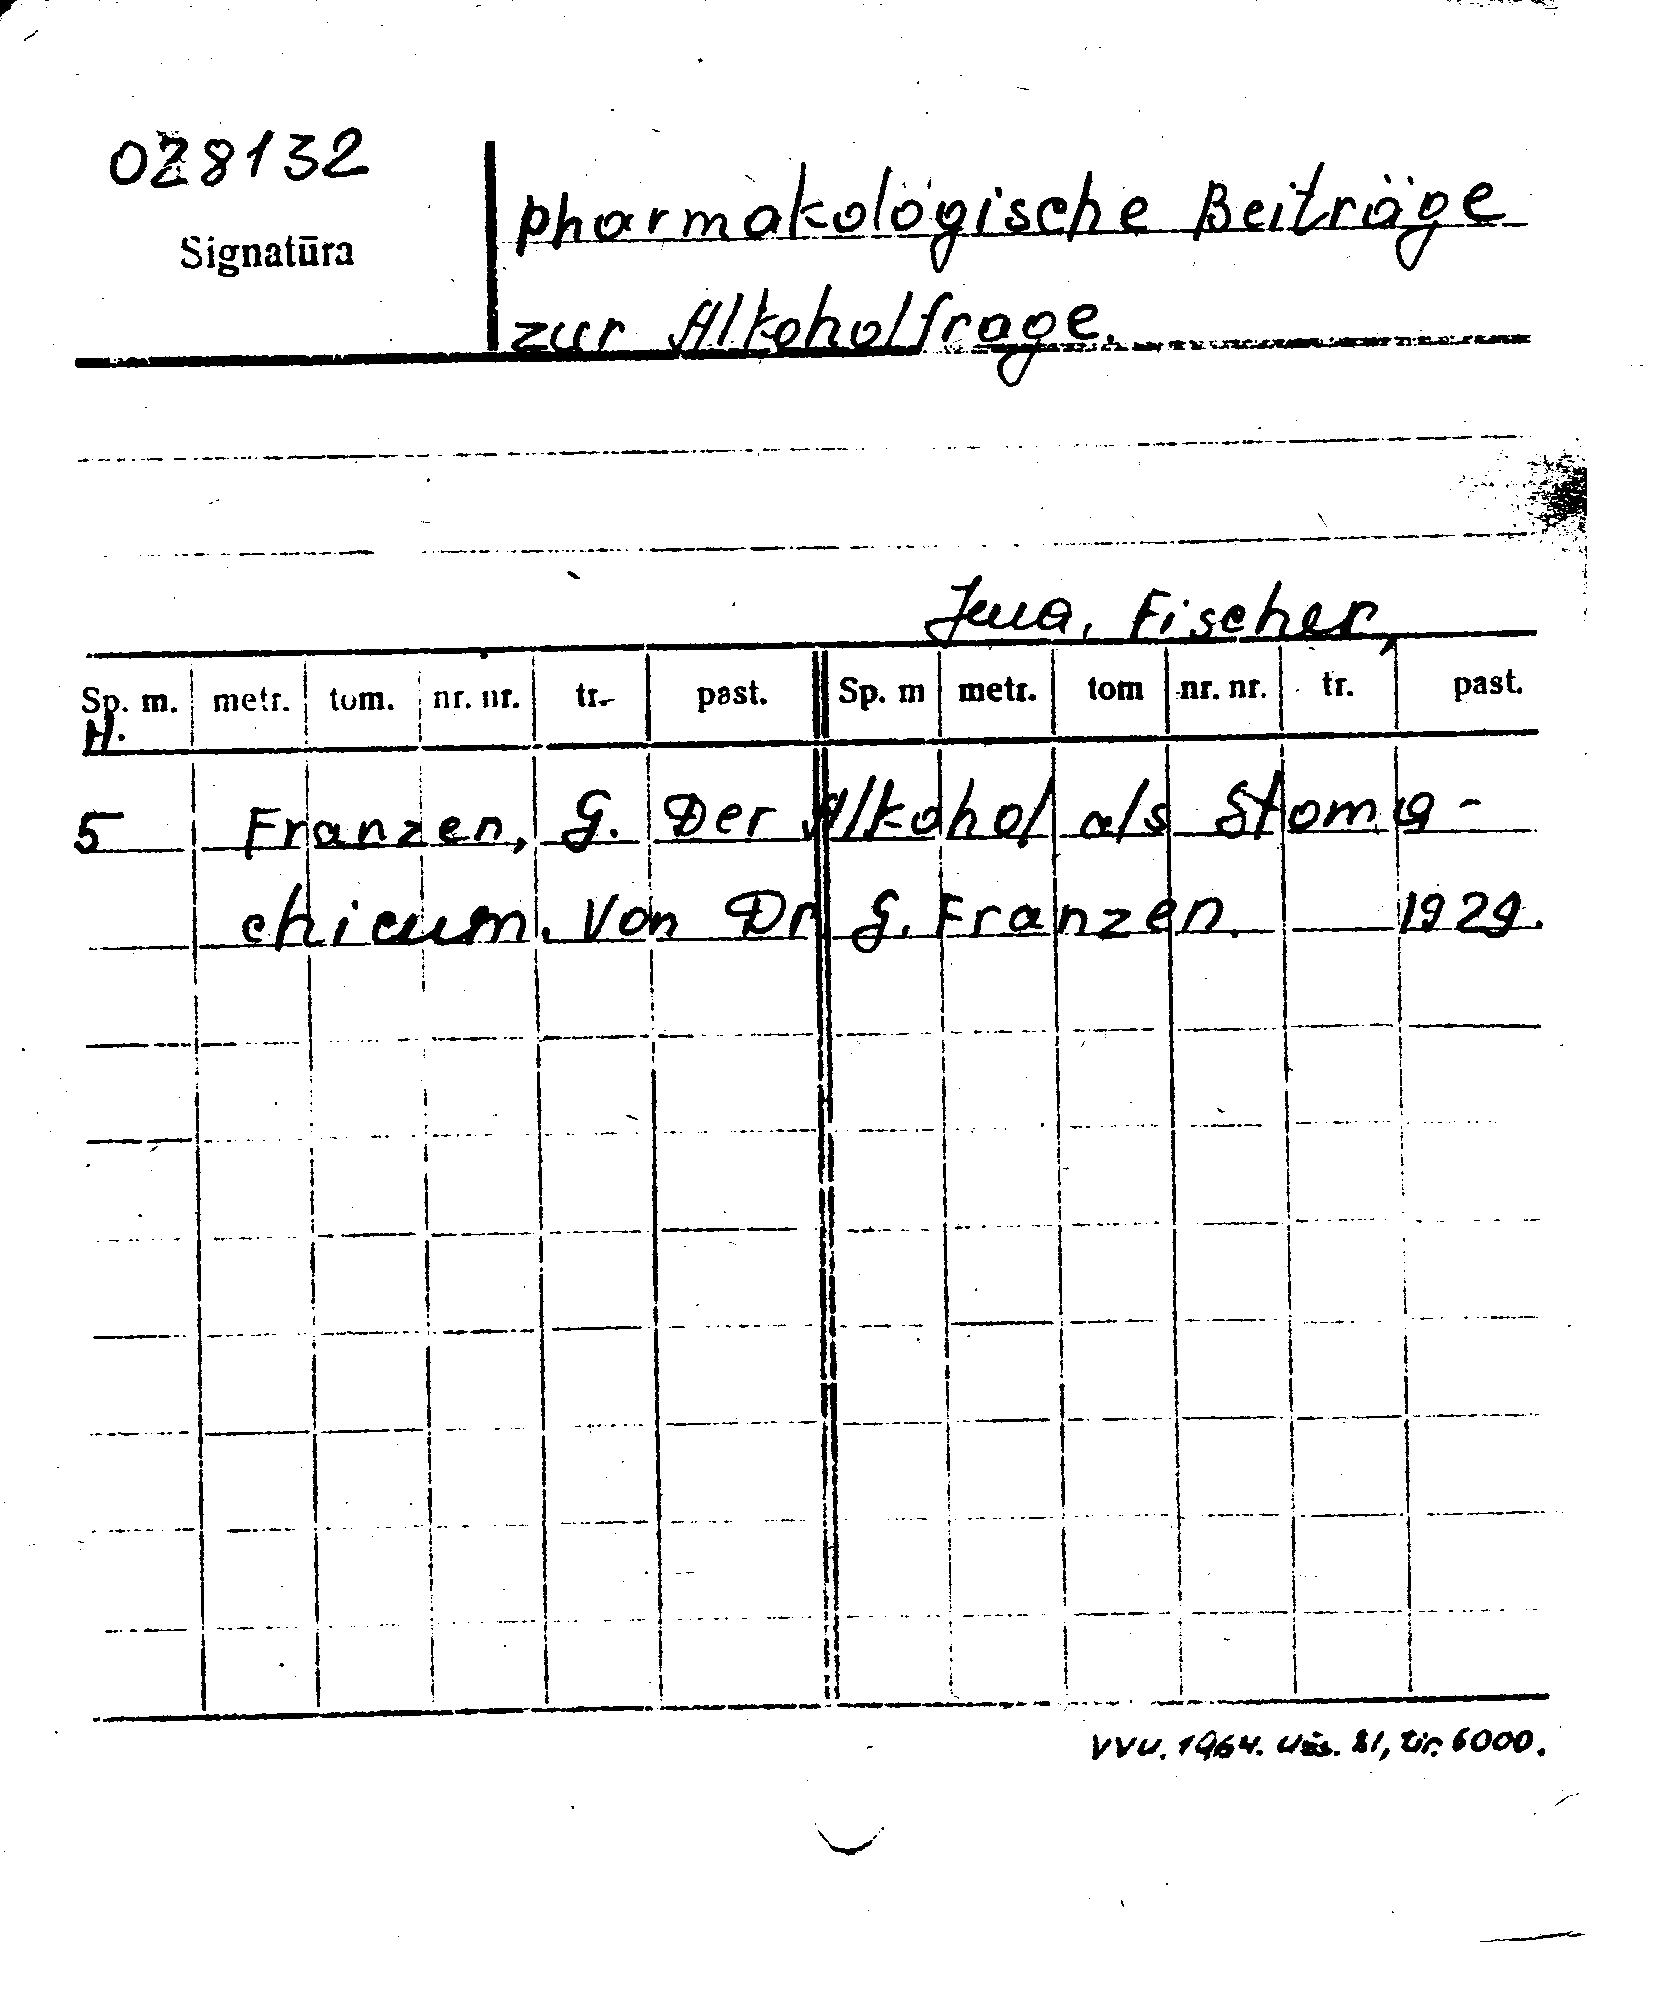 028132
Signatūra
Pharmakologische Beiträge
zur Alkoholfrage.
Jena, Fischer,
Sp. m. metr. tom. nr. nr. tr. past. Sp. m metr. tom nr. nr. tr. past.
H.
5 Franzen, G. Der Alkohol als Stoma-
chicum. Von Dr. G. Franzen. 1929.
VVU. 1964. Užs. 81, tir. 6000.